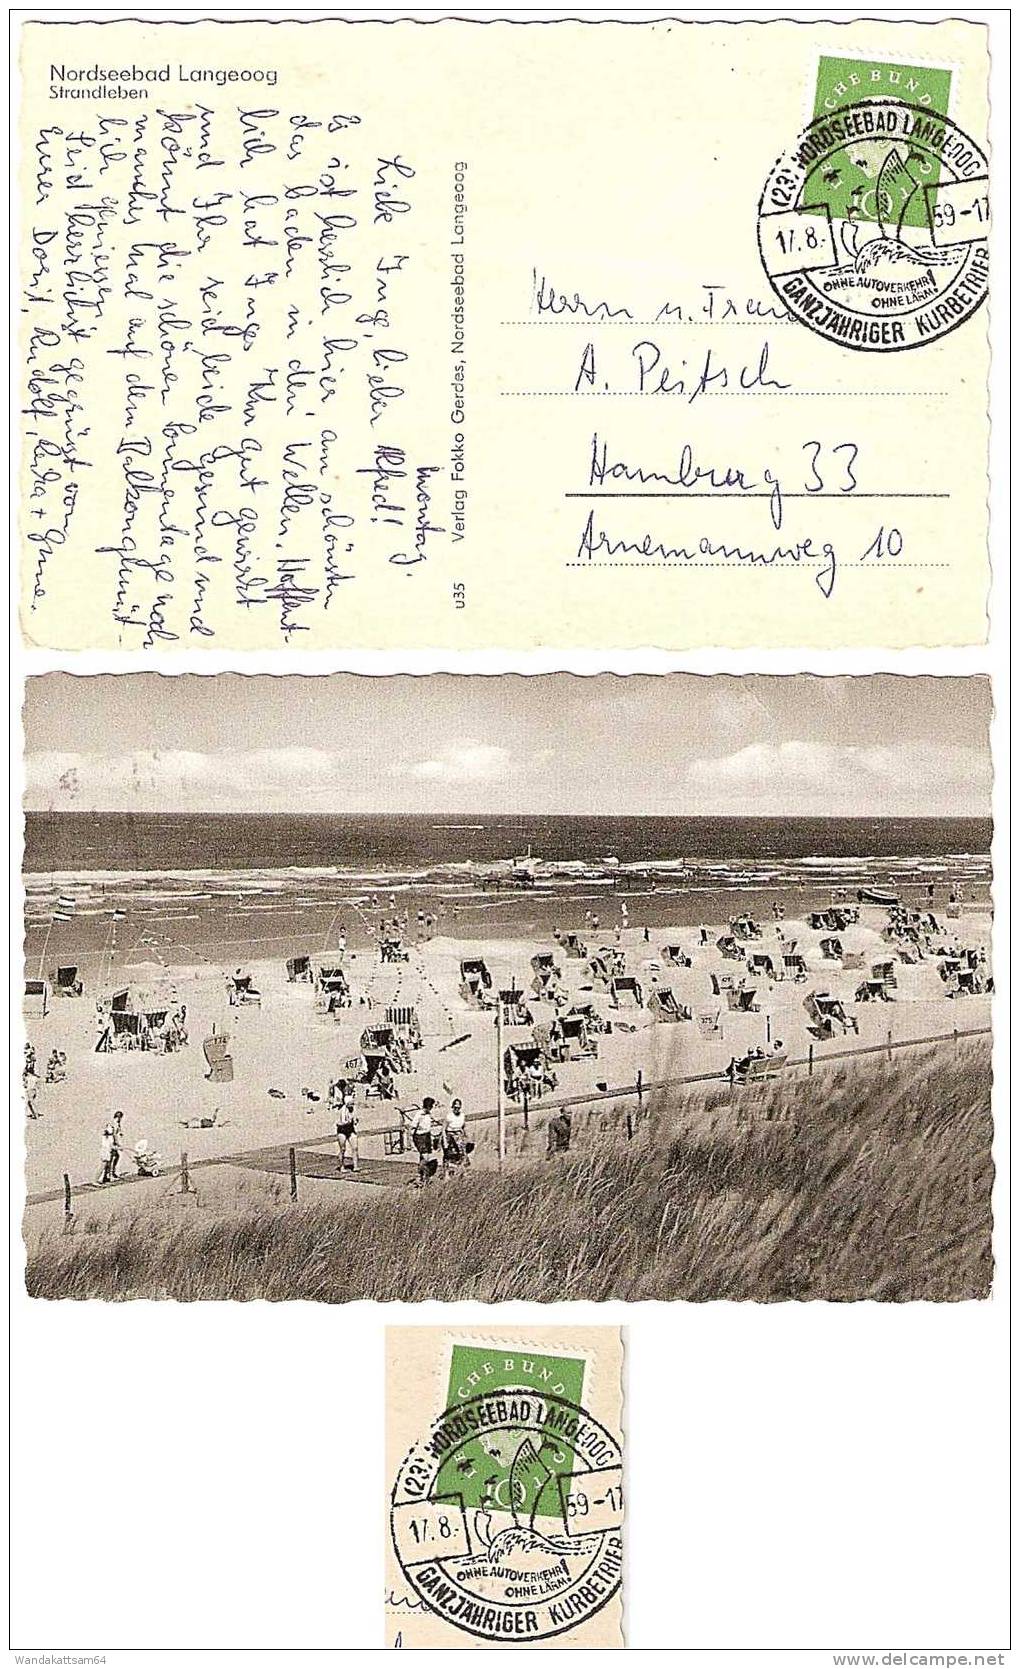 Nordseebad Langeoog
Strandleben
Montag.
Liebe Inge, lieber Alfred!
Es ist herrlich hier, am schönsten
das baden in den Wellen. Hoffent-
lich hat Inges Kur gut gewirkt
und Ihr seid beide gesund und
könnt die schönen Sonnentage noch
manches mal auf dem Balkon gemüt-
lich geniessen.
Seid herzlichst gegrüsst von
Eurer Dorit, Rudolf, +
u35 Verlag Fokko Gerdes, Nordseebad Langeoog
DEUTSCHE BUNDESPOST
10
(23) NORDSEEBAD LANGEOOG
17.8.-59-17
OHNE AUTOVERKEHR!
OHNE LÄRM!
GANZJÄHRIGER KURBETRIEB
Herrn u. Frau
A. Peitsch
Hamburg 33
Arnemannweg 10
467
375
DEUTSCHE BUNDESPOST
10
(23) NORDSEEBAD LANGEOOG
17.8.-59-17
OHNE AUTOVERKEHR!
OHNE LÄRM!
GANZJÄHRIGER KURBETRIEB
Wandakattsam64
www.delcampe.net